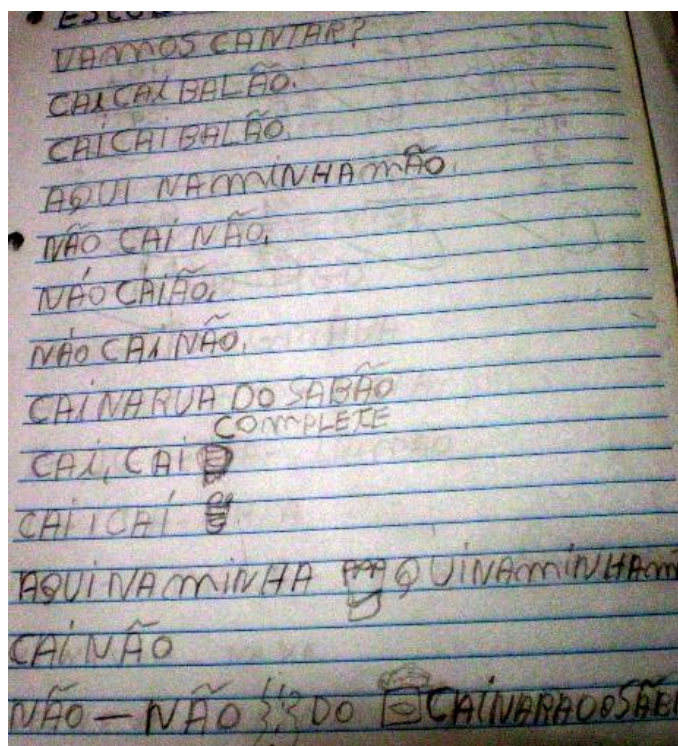 VAMOS CANTAR?
CAI CAI BALÃO.
CAI CAI BALÃO.
AQUI NA MINHA MÃO.
NÃO CAI NÃO,
NÃO CAIÃO,
NÃO CAI NÃO,
CAI NA RUA DO SABÃO
COMPLETE
CAI, CAI
CAI, CAI
AQUI NA MINHA QUINAMINHAM
CAI NÃO
NÃO — NÃO DO